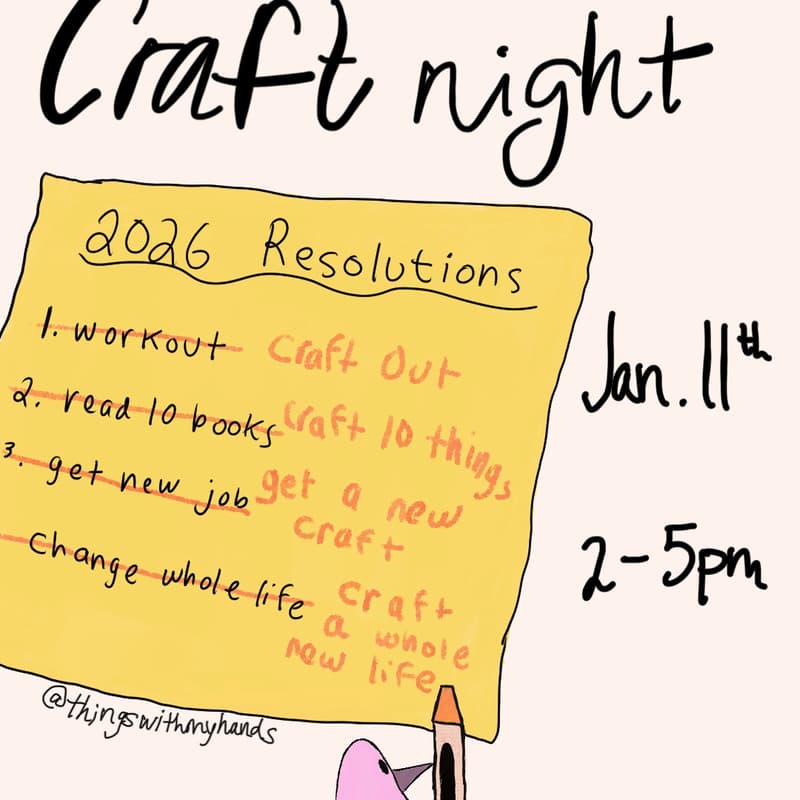 Craft night
2026 Resolutions
1. workout craft out
2. read 10 books craft 10 things
3. get new job get a new
craft
change whole life craft
a whole
new life
Jan. 11th
2-5pm
@thingswithmyhands